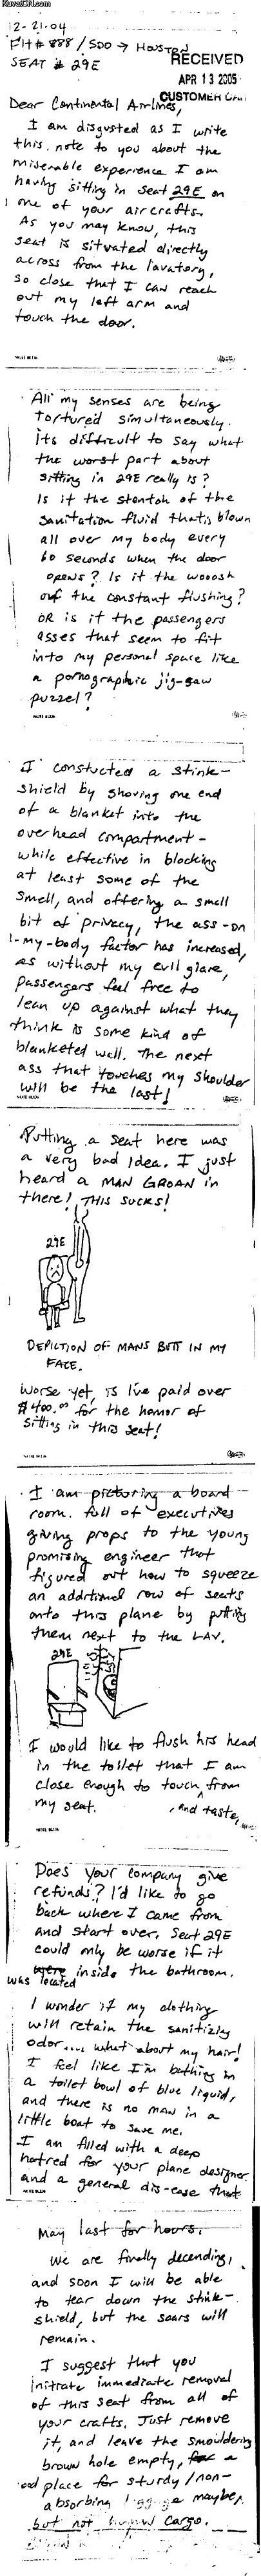 KuvatON.com
12-21-04
Flt # 888 / SDO → HOUSTON
SEAT # 29E
RECEIVED
APR 13 2005
CUSTOMER
Dear Continental Airlines,
I am disgusted as I write
this note to you about the
miserable experience I am
having sitting in seat 29E on
one of your aircrafts.
As you may know, this
seat is situated directly
across from the lavatory,
so close that I can reach
out my left arm and
touch the door.
All my senses are being
tortured simultaneously.
its difficult to say what
the worst part about
sitting in 29E really is?
Is it the stentch of the
sanitation fluid that is blown
all over my body every
60 seconds when the door
opens? Is it the wooosh
of the constant flushing?
OR is it the passengers
asses that seem to fit
into my personal space like
a pornographic jig-saw
puzzel?
I constucted a stink-
shield by shoving one end
of a blanket into the
overhead compartment -
while effective in blocking
at least some of the
smell, and offering a small
bit of privacy, the ass-on
-my-body factor has increased,
as without my evil glare,
passengers feel free to
lean up against what they
think is some kind of
blanketed wall. The next
ass that touches my shoulder
will be the last!
Putting a seat here was
a very bad idea. I just
heard a MAN GROAN in
there! THIS SUCKS!
29E
DEPICTION OF MANS BUTT IN MY
FACE.
Worse yet, is I've paid over
$400.00 for the honor of
sitting in this seat!
I am picturing a board
room, full of executives
giving props to the young
promising engineer that
figured out how to squeeze
an additional row of seats
onto this plane by putting
them next to the LAV.
29E
I would like to flush his head
in the toilet that I am
close enough to touch from
my seat. , and taste,
Does your company give
refunds? I'd like to go
back where I came from
and start over. Seat 29E
could only be worse if it
was located inside the bathroom.
I wonder if my clothing
will retain the sanitizing
odor.... what about my hair!
I feel like I'm bathing in
a toilet bowl of blue liquid,
and there is no man in a
little boat to save me.
I am filled with a deep
hatred for your plane designer
and a general dis-ease that
may last for hours.
We are finally decending,
and soon I will be able
to tear down the stink-
shield, but the scars will
remain.
I suggest that you
initiate immediate removal
of this seat from all of
your crafts. Just remove
it, and leave the smouldering
brown hole empty, a
ood place for sturdy/non-
absorbing maybe,
but not human cargo.